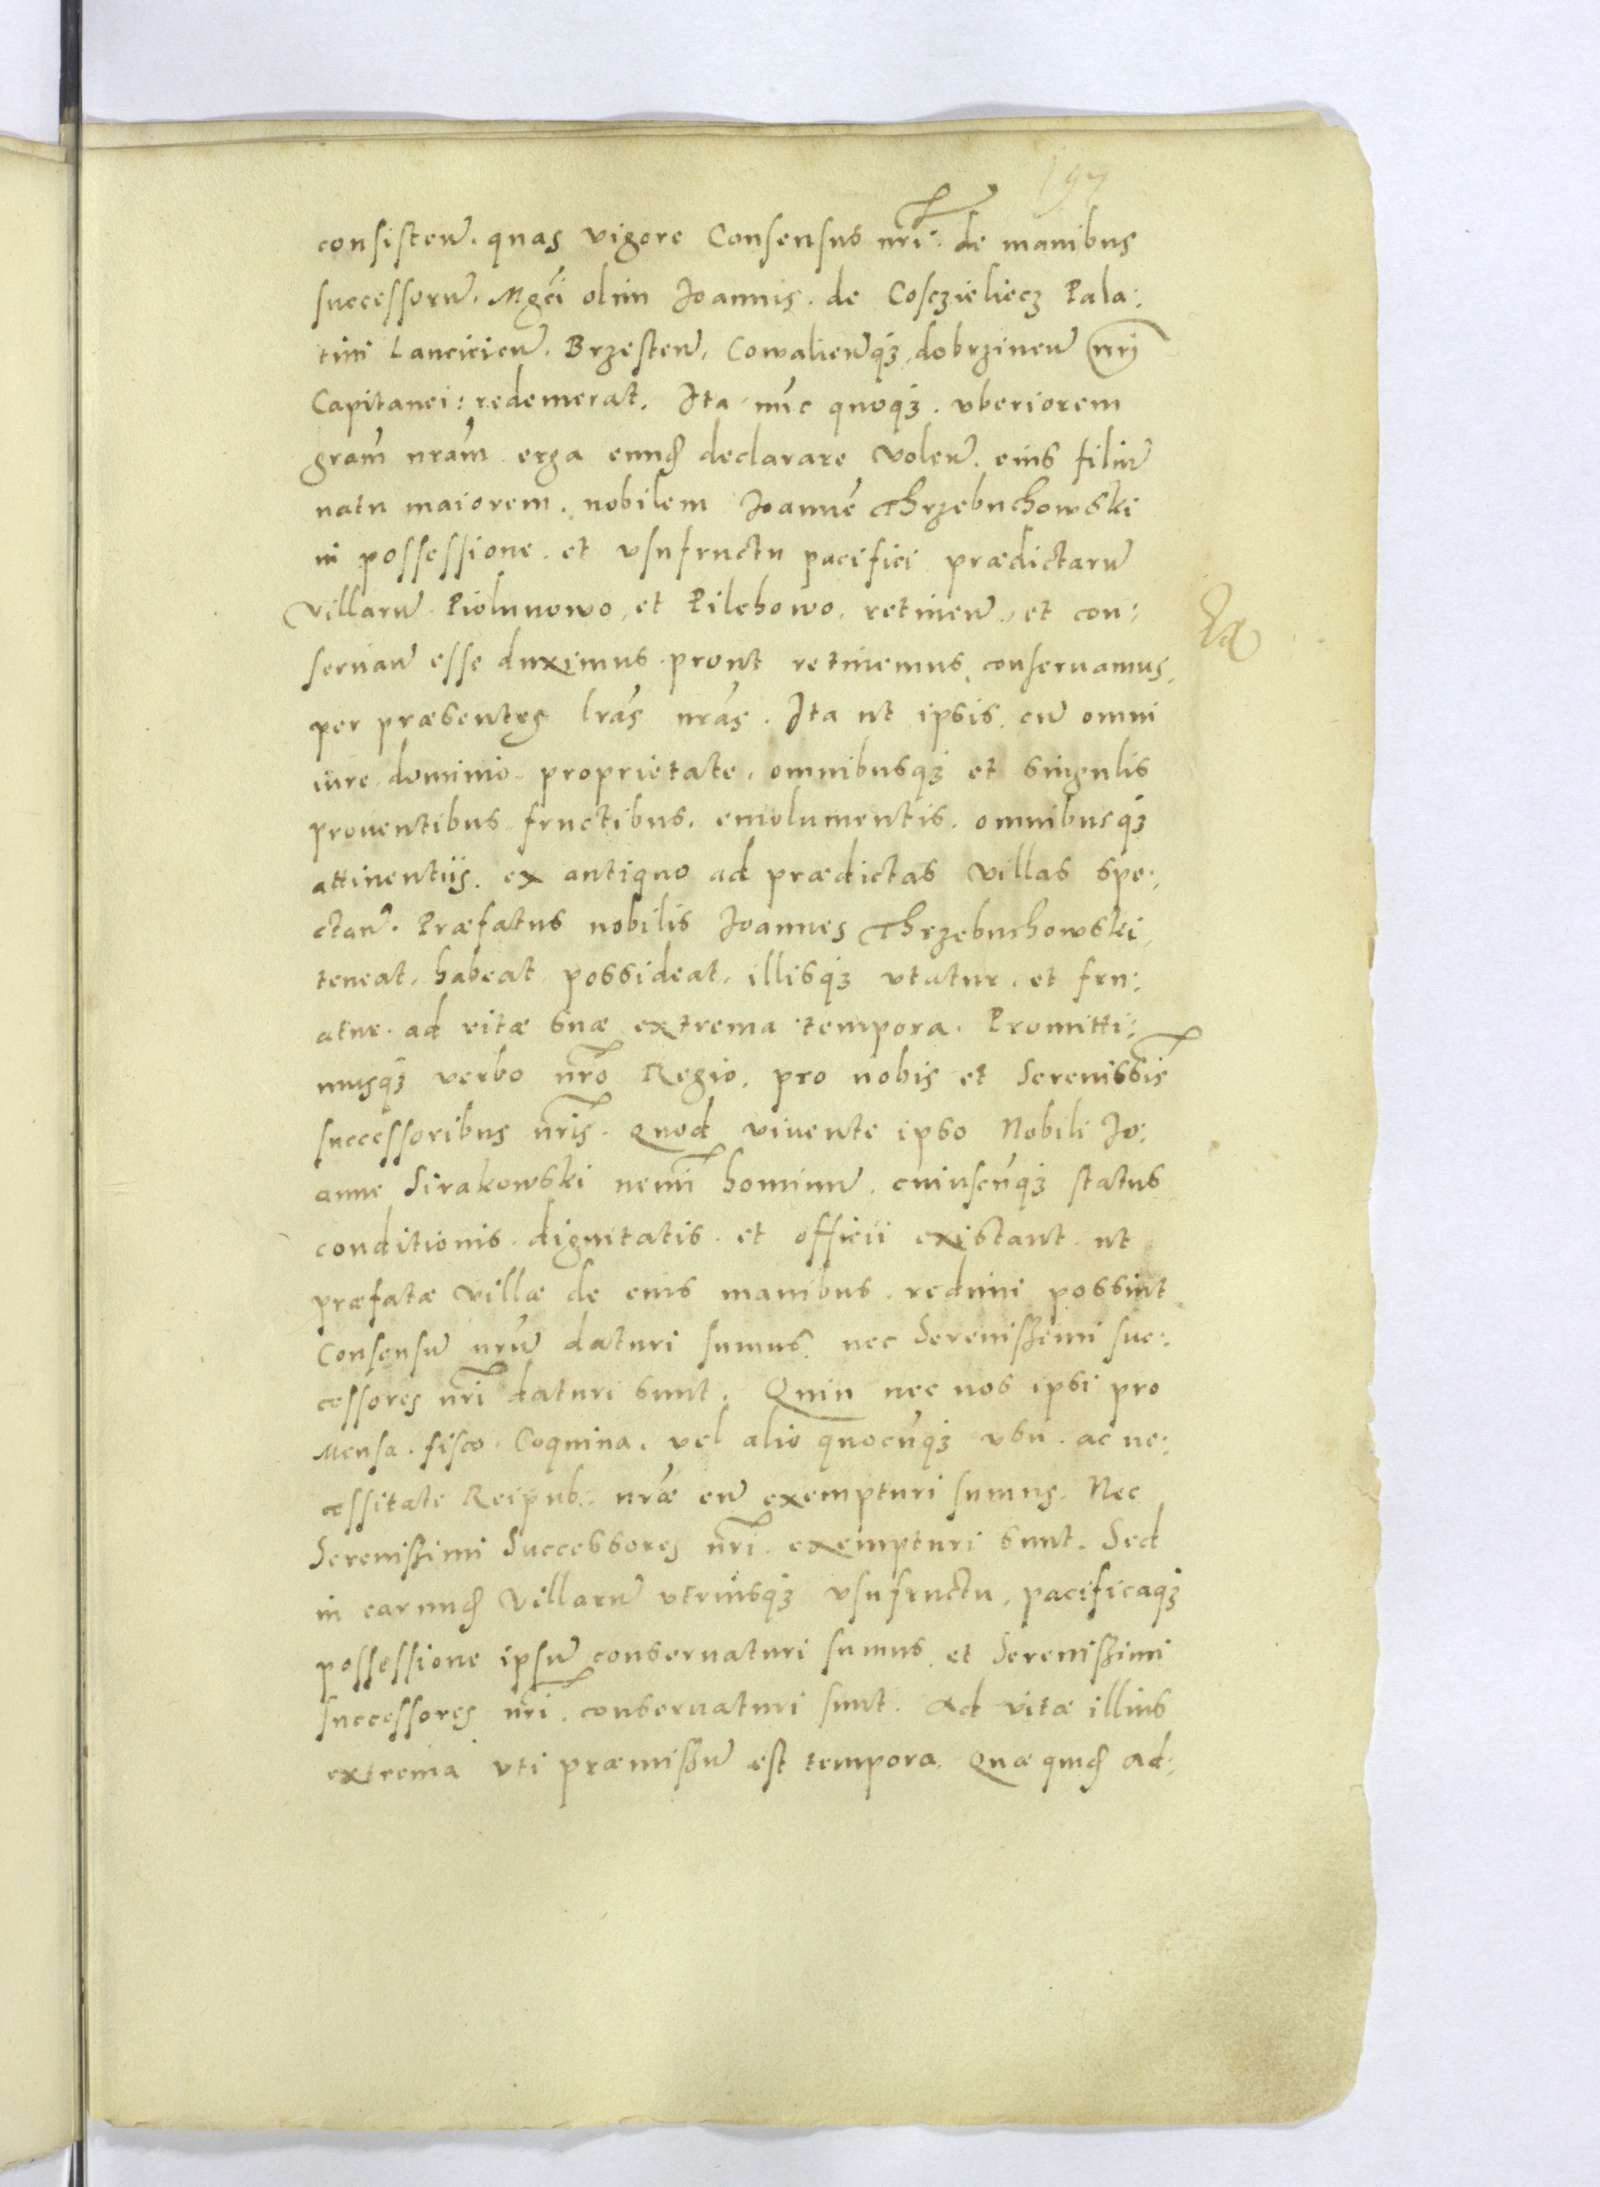 197
consisten̄. quas vigore Consensus nr̄i: de manibus
successorū. Mgc̄i olim Joannis. de Coszczieliecz Pala:
tini Lancicien̄. Brzesten̄. Cowalien̄q3 dobrzinen̄ nrī
Capitanei: redemerat. Ita nūc quoq3. vberiorem
grām nrām erga eund̄ declarare volen̄. eius filiū
natu maiorem. nobilem Joannē Thrzebuchowski
in possessione. et vsufructu pacifici prædictarū
villarū Piolunowo, et Pilchowo, retinen̄. et con:
seruan̄ esse duximus prout retinemus conseruamus,
per præsentes lrās nrās. Ita ut ipsis. cū omni
iure dominio proprietate. omnibusq3 et singulis
prouentibus fructibus. emolumentis. omnibusq3
attinentiis. ex antiquo ad prædictas villas spe:
ctan̄. Præfatus nobilis Joannes Thrzebuchowski,
teneat. habeat possideat. illisq3 vtatur. et fru:
atur. ad vitæ suæ extrema tempora. Promitti:
musq3 verbo nr̄o Regio. pro nobis et Serenissīs
successoribus nr̄is. Quod viuente ipso Nobili Jo:
anne Sirakowski nemī hominū. cuiuscūq3 status
conditionis. dignitatis. et officii existant. ut
præfatæ villæ de eius manibus. redimi possint
Consensū nr̄ū daturi sumus. nec Serenissimi suc:
cessores nr̄i daturi sunt. Quin nec nos ipsi pro
Mensa. fisco. Coquina. vel alio quocūq3 vsu. ac ne:
cessitate Reipub: nrǣ eū exempturi sumus. Nec
Serenissimi Successores nr̄i. exempturi sunt. Sed
in earund̄ villarū vtriusq3 vsufructu. pacificaq3
possessione ipsū conseruaturi sumus et Serenissimi
successores nr̄i. conseruaturi sunt. Ad vitæ illius
extrema vti præmissū est tempora. Quæ quid̄ ad: